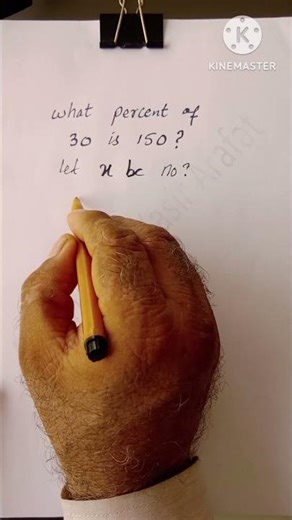 KINEMASTER
what percent of
30 is 150?
let x be no?
Arafat